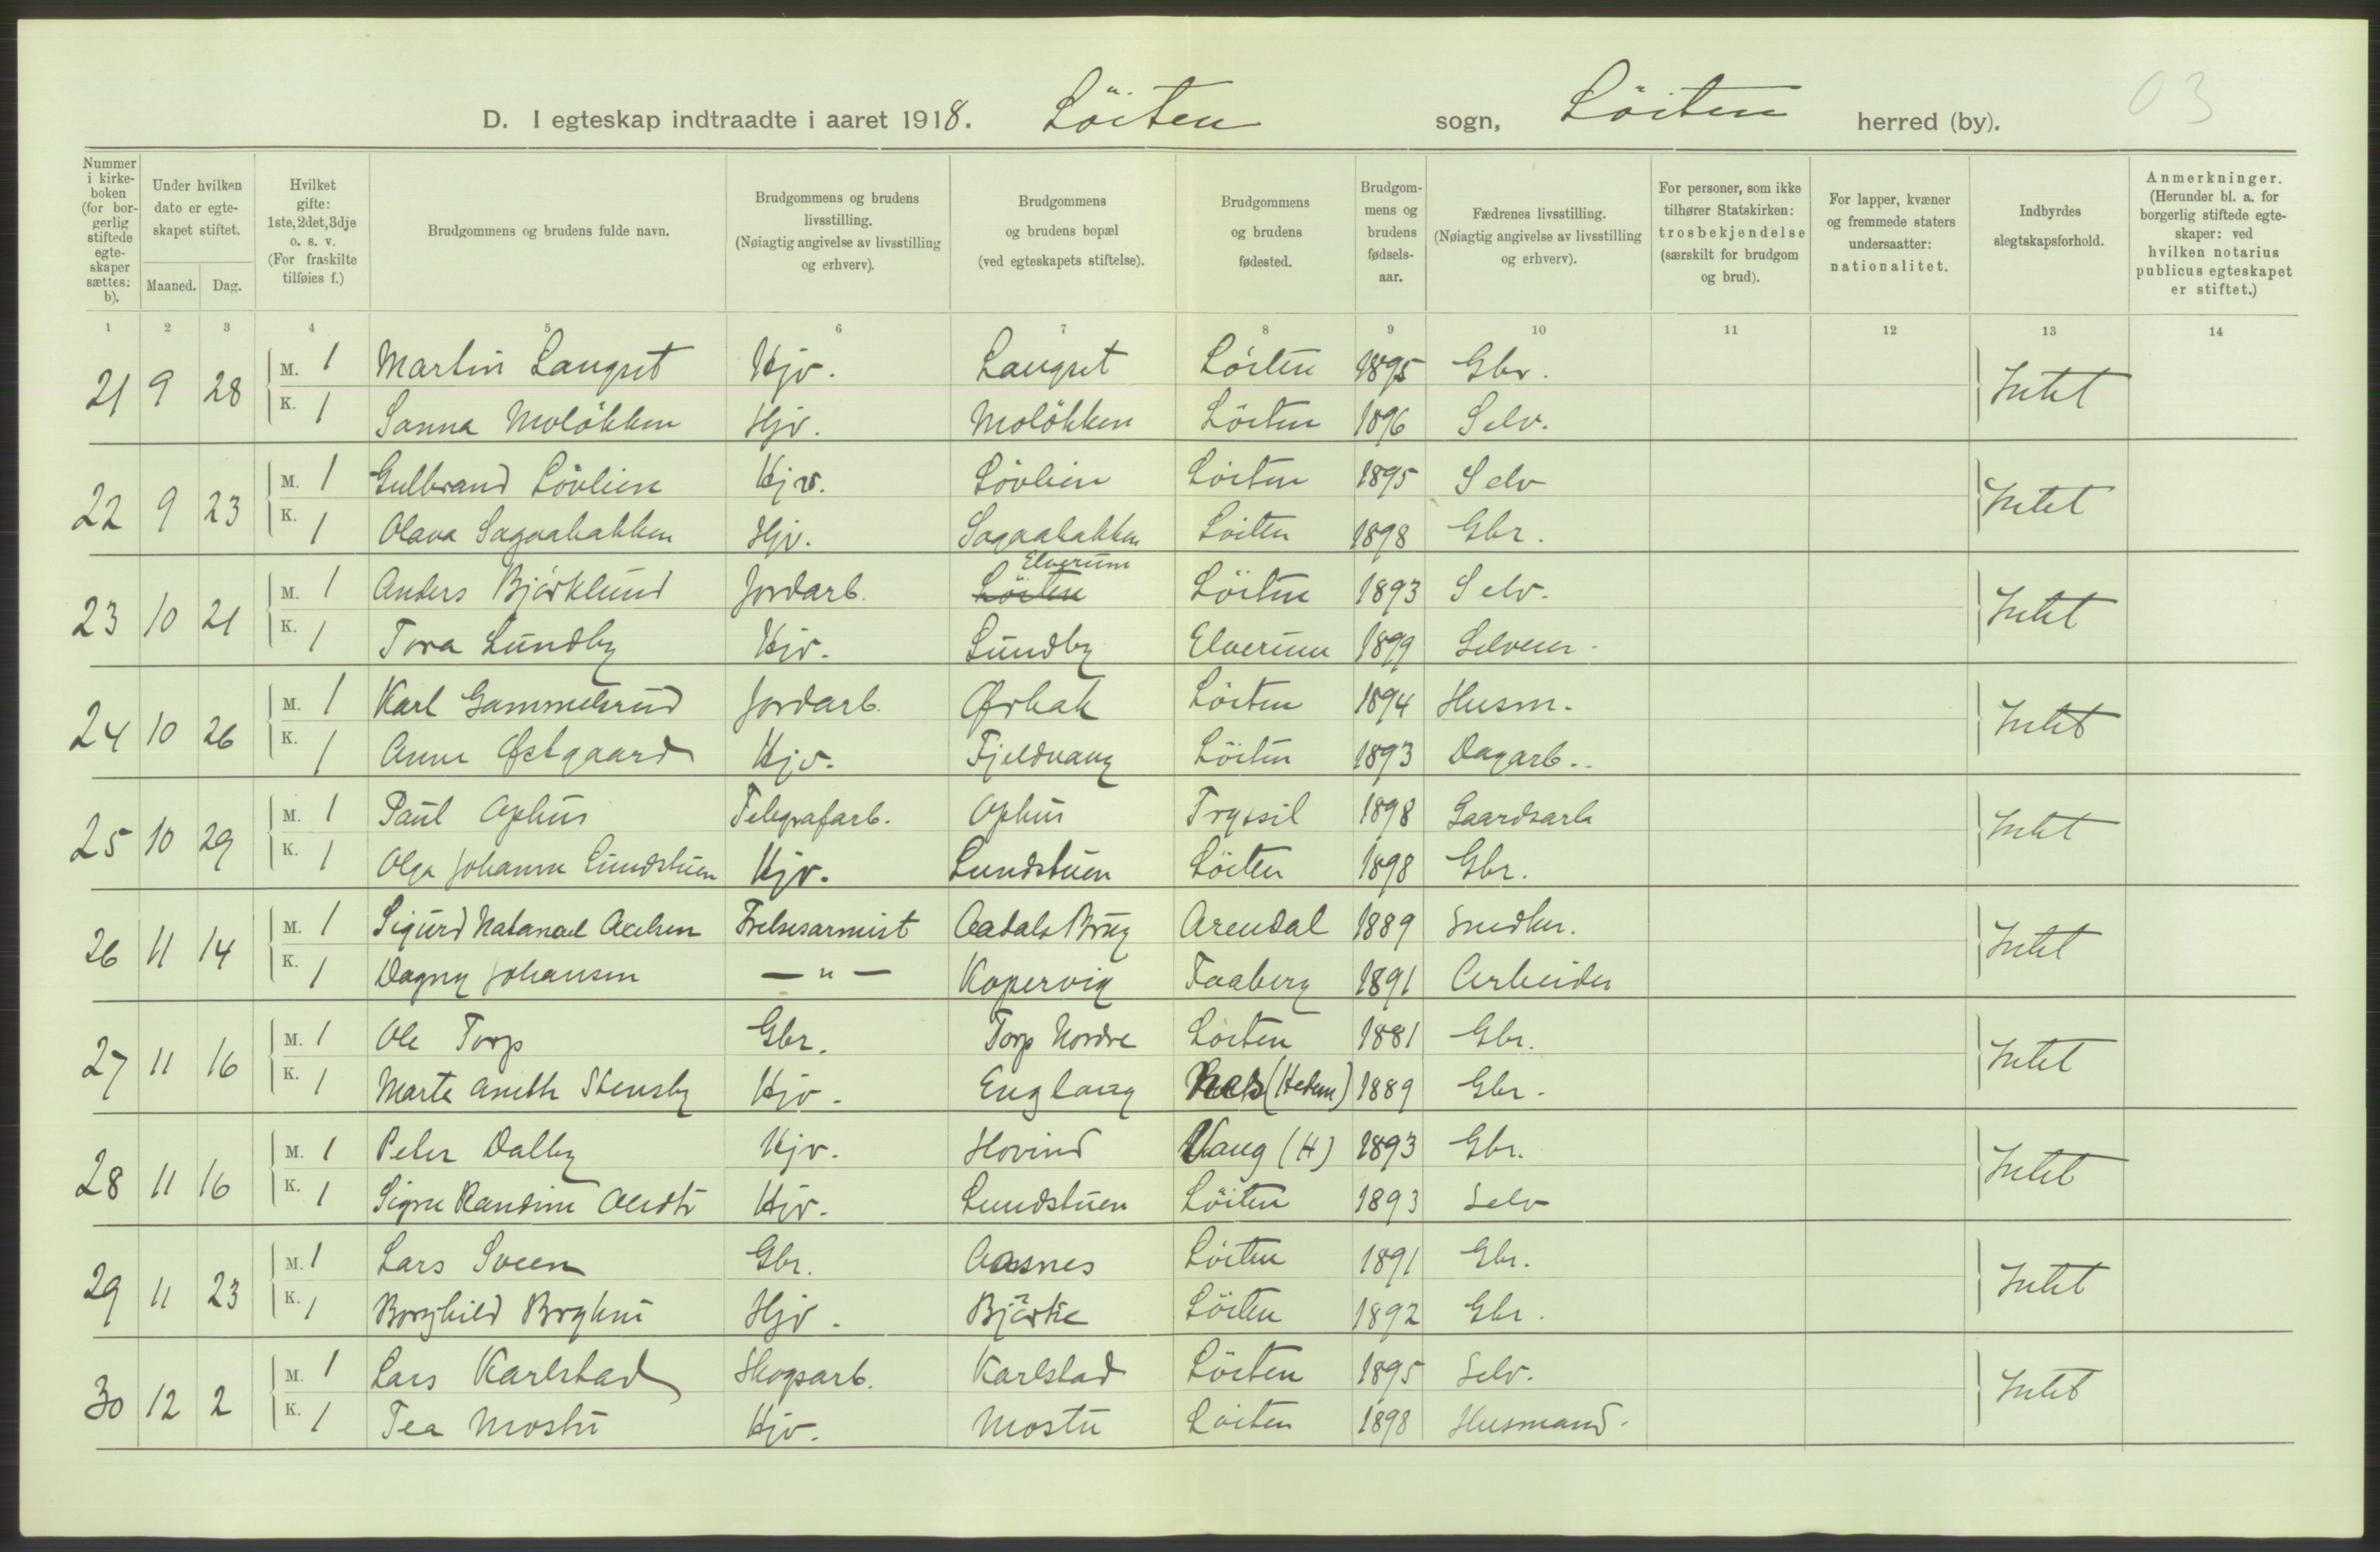 03
D. I egteskap indtraadte i aaret 1918. Löiten sogn, Löiten herred (by).
Nummer i kirkeboken (for borgerlig stiftede egteskaper sættes: b).
Under hvilken dato er egteskapet stiftet.
Maaned. Dag.
Hvilket gifte: 1ste, 2det, 3dje o. s. v. (For fraskilte tilføies f.)
Brudgommens og brudens fulde navn.
Brudgommens og brudens livsstilling. (Nøiagtig angivelse av livsstilling og erhverv).
Brudgommens og brudens bopæl (ved egteskapets stiftelse).
Brudgommens og brudens fødested.
Brudgommens og brudens fødselsaar.
Fædrenes livsstilling. (Nøiagtig angivelse av livsstilling og erhverv).
For personer, som ikke tilhører Statskirken: trosbekjendelse (særskilt for brudgom og brud).
For lapper, kvæner og fremmede staters undersaatter: nationalitet.
Indbyrdes slegtskapsforhold.
Anmerkninger. (Herunder bl. a. for borgerlig stiftede egteskaper: ved hvilken notarius publicus egteskapet er stiftet.)
1 2 3 4 5 6 7 8 9 10 11 12 13 14
21 9 28 M. 1 Martin Langset Hjv. Langset Löiten 1895 Gbr. Intet
K. 1 Sanna Moløkken Hjv. Moløkken Löiten 1896 Selv.
22 9 23 M. 1 Gulbrand Lövlien Hjv. Lövlien Löiten 1895 Selv Intet
K. 1 Olava Sagaabakken Hjv. Sagaabakken Löiten 1898 Gbr.
Elverum
23 10 21 M. 1 Anders Björklund Jordarb. Löiten Löiten 1893 Selv. Intet
K. 1 Tora Lundby Hjv. Lundby Elverum 1899 Selveier.
24 10 26 M. 1 Karl Gammelsrud Jordarb. Ørbak Löiten 1894 Husm. Intet
K. 1 Anne Østgaard Hjv. Fjeldvang Löiten 1893 Dagarb..
25 10 29 M. 1 Paul Ophus Telegrafarb. Ophus Trysil 1898 Gaardsarb Intet
K. 1 Olga Johanne Lundstuen Hjv. Lundstuen Löiten 1898 Gbr.
26 11 14 M. 1 Sigurd Natanael Axelsen Frelsesarmist Aadals Brug Arendal 1889 Snedker. Intet
K. 1 Dagny Johansen — " — Kopervig Faaberg 1891 Arbeider
27 11 16 M. 1 Ole Torp Gbr. Torp Nordre Löiten 1881 Gbr. Intet
K. 1 Marte Anette Stensby Hjv. Englang Nes (Hedem) 1889 Gbr.
28 11 16 M. 1 Peter Dalby Hjv. Hovind Vang (H) 1893 Gbr. Intet
K. 1 Signe Randine Hjv. Lundstuen Löiten 1893 Selv
29 11 23 M. 1 Lars Sveen Gbr. Aasnes Löiten 1891 Gbr. Intet
K. 1 Borghild Bryhni Hjv. Bjørke Löiten 1892 Gbr.
30 12 2 M. 1 Lars Karlstad Skogsarb. Karlstad Löiten 1895 Selv. Intet
K. 1 Tea Mostu Hjv. Mostu Löiten 1898 Husmand.